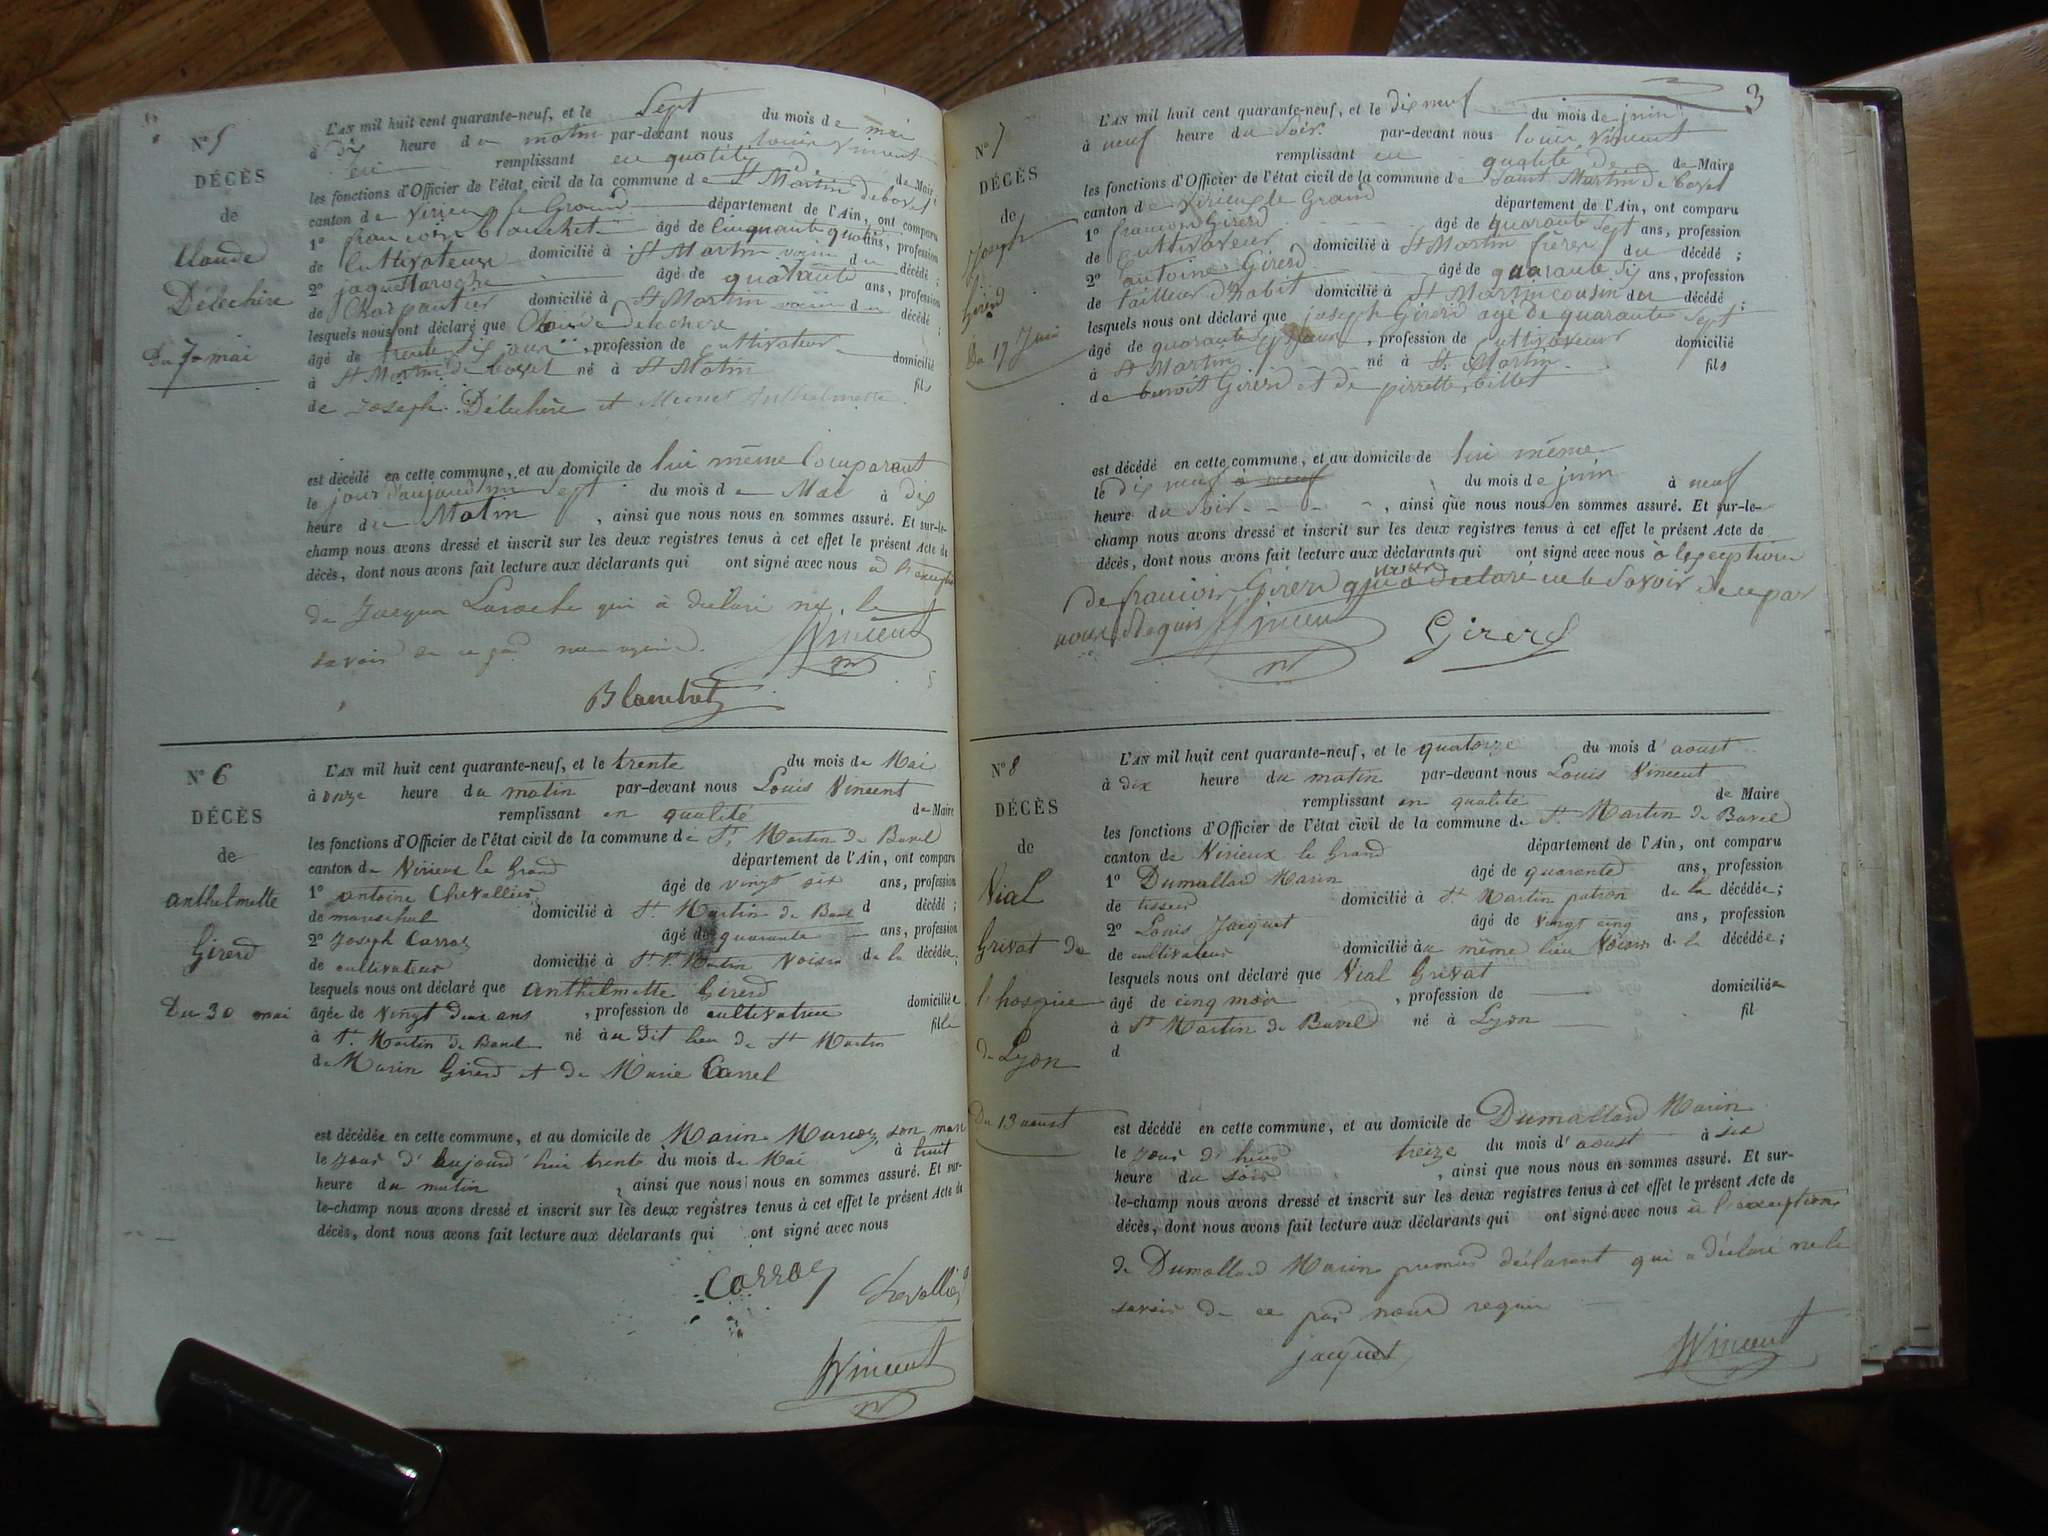 N° 5
DÉCÈS
de
Claude
Déléchère
Du 7 mai
L'AN mil huit cent quarante-neuf, et le Sept du mois de mai
à dix heure du matin par-devant nous louis vincent
remplissant en qualité de Maire
les fonctions d'Officier de l'état civil de la commune de St Martin de bavel
canton de virieu le Grand département de l'Ain, ont comparu
1° francois blanchet âgé de Cinquante quatre ans, profession
de Cultivateur domicilié à St Martin voisin du décédé ;
2° jaque Laroche âgé de quarante ans, profession
de Charpantier domicilié à St Martin voisin du décédé ;
lesquels nous ont déclaré que Claude delechere
âgé de trente six ans, profession de Cultivateur domicilié
à St Martin de bavel né à St Matin fils
de Joseph Déléchère et Anthelmette
est décédé en cette commune, et au domicile de lui même Comparant
le jour d'aujourd'hui Sept du mois de Mai à dix
heure du Matin, ainsi que nous nous en sommes assuré. Et sur-le-
champ nous avons dressé et inscrit sur les deux registres tenus à cet effet le présent Acte de
décès, dont nous avons fait lecture aux déclarants qui ont signé avec nous à l'exception
de Jacques Laroche qui à déclaré ne le
savoir de ce par nous requis.
Vincent
Blanchet
N° 6
DÉCÈS
de
anthelmette
Girerd
Du 30 mai
L'AN mil huit cent quarante-neuf, et le trente du mois de Mai
à onze heure du matin par-devant nous Louis Vincent
remplissant en qualité de Maire
les fonctions d'Officier de l'état civil de la commune de St Martin de Bavel
canton de Virieux le Grand département de l'Ain, ont comparu
1° antoine Chevallier âgé de vingt six ans, profession
de mareschal domicilié à St Martin de Bavel d décédé ;
2° Joseph Carraz âgé de quarante ans, profession
de cultivateur domicilié à St Martin Voisin de la décédée ;
lesquels nous ont déclaré que anthelmette Girerd
âgée de Vingt deux ans, profession de cultivatrice domiciliée
à St Martin de Bavel né au dit lieu de St Martin fille
de Marin Girerd et de Marie Carrel
est décédée en cette commune, et au domicile de Marin son mari
le jour d'aujourd'hui trente du mois de Mai à huit
heure du matin, ainsi que nous nous en sommes assuré. Et sur-
le-champ nous avons dressé et inscrit sur les deux registres tenus à cet effet le présent Acte de
décès, dont nous avons fait lecture aux déclarants qui ont signé avec nous
Carraz Chevallier
Vincent
3
N° 7
DÉCÈS
de
Joseph
Girerd
Du 19 Juin
L'AN mil huit cent quarante-neuf, et le dix neuf du mois de juin
à neuf heure du Soir par-devant nous louis Vincent
remplissant en qualité de de Maire
les fonctions d'Officier de l'état civil de la commune de Saint Martin de bavel
canton de virieux le Grand département de l'Ain, ont comparu
1° francois Girerd âgé de quarante Sept ans, profession
de Cultivateur domicilié à St Martin frère du décédé ;
2° antoine Girerd âgé de quarante six ans, profession
de tailleur d'habit domicilié à St Martin cousin du décédé ;
lesquels nous ont déclaré que joseph Girerd agé de quarante Sept
âgé de quarante, profession de Cultivateur domicilié
à St Martin né à St Martin fils
de benoit Girerd et de pierrette billet
est décédé en cette commune, et au domicile de lui même
le dix neuf à neuf du mois de juin à neuf
heure du Soir, ainsi que nous nous en sommes assuré. Et sur-le-
champ nous avons dressé et inscrit sur les deux registres tenus à cet effet le présent Acte de
décès, dont nous avons fait lecture aux déclarants qui ont signé avec nous à l'exception
de francois Girerd qui à déclaré ne le Savoir de ce par
nous Requis Vincent Girerd
N° 8
DÉCÈS
de
Vial
Grivat de
l'hospice
de Lyon
Du 13 aoust
L'AN mil huit cent quarante-neuf, et le quatorze du mois d'aoust
à dix heure du matin par-devant nous Louis Vincent
remplissant en qualité de Maire
les fonctions d'Officier de l'état civil de la commune de St Martin de Bavel
canton de Virieux le Grand département de l'Ain, ont comparu
1° Dumollard Marin âgé de quarante ans, profession
de tisseur domicilié à St Martin patron de la décédée ;
2° Louis Jacquet âgé de Vingt cinq ans, profession
de cultivateur domicilié au même lieu Voisin de la décédée ;
lesquels nous ont déclaré que Vial Grivat
âgé de cinq mois, profession de domiciliée
à St Martin de Bavel né à Lyon fil
d
est décédé en cette commune, et au domicile de Dumollard Marin
le jour d'hier treize du mois d'aoust à six
heure du soir, ainsi que nous nous en sommes assuré. Et sur-
le-champ nous avons dressé et inscrit sur les deux registres tenus à cet effet le présent Acte de
décès, dont nous avons fait lecture aux déclarants qui ont signé avec nous à l'exception
de Dumollard Marin premier déclarant qui a déclaré ne le
savoir de ce par nous requis
jacquet Vincent